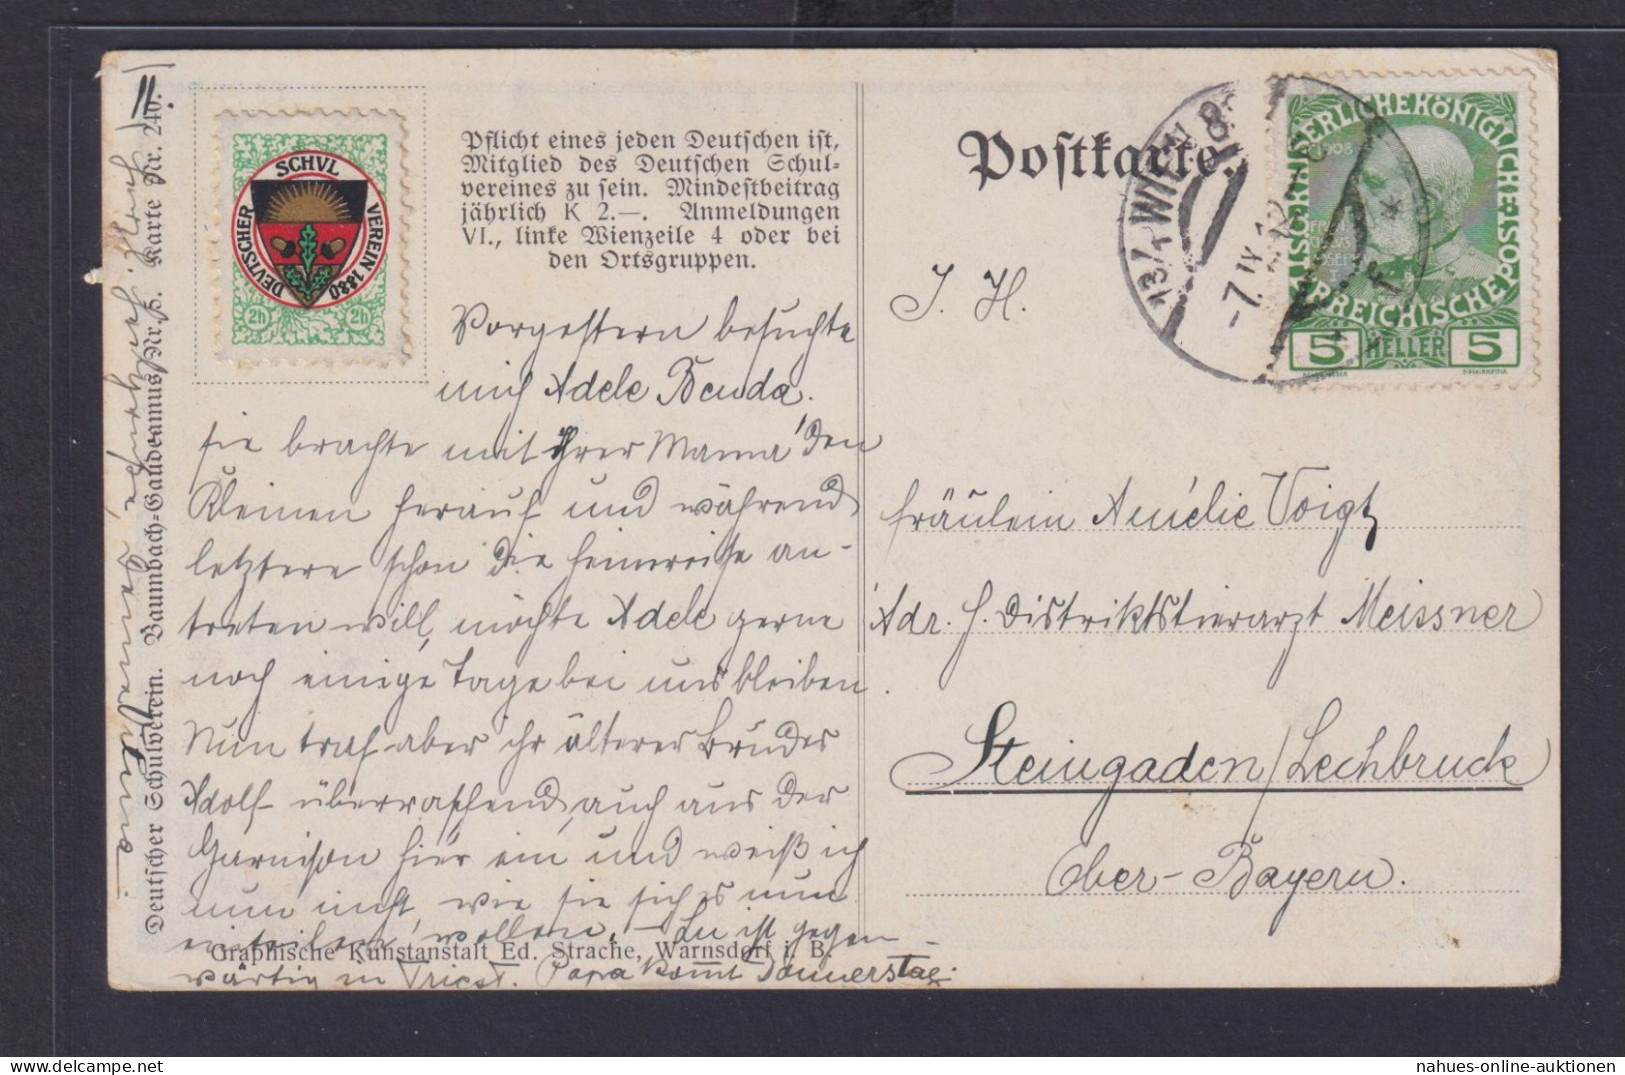 II.
Deutscher Schulverein. Baumbach-Gaudeamus Nr. 5. Karte Nr. 240.
SCHVL
VEREIN 1880
DEVTSCHER
2h 2h
Pflicht eines jeden Deutschen ist,
Mitglied des Deutschen Schul-
vereines zu sein. Mindestbeitrag
jährlich K 2.—. Anmeldungen
VI., linke Wienzeile 4 oder bei
den Ortsgruppen.
Vorgestern besuchte
mich Adele Benda.
sie brachte mit ihrer Mama den
Kleinen herauf und während
letztere schon die Heimreise an-
treten will, möchte Adele gerne
noch einige Tage bei uns bleiben.
Nun traf aber ihr älterer Bruder
Adolf überraschend, auch aus der
Garnison hier ein und weiß ich
nun nicht, wie sie sich es nun
einteilen wollen. – Lu ist gegen-
wärtig in Triest. Papa kommt Donnerstag.
Graphische Kunstanstalt Ed. Strache, Warnsdorf i. B.
Postkarte.
13/4 WIEN 8
-7. IX. 12
KAISERLICHE KÖNIGLICHE
ÖSTERREICHISCHE POST
1908
5 HELLER 5
J. H.
Fräulein Amélie Voigt
Adr. H. Distriktstierarzt Meissner
Steingaden/Lechbruck
Ober-Bayern.
nahues-online-auktionen